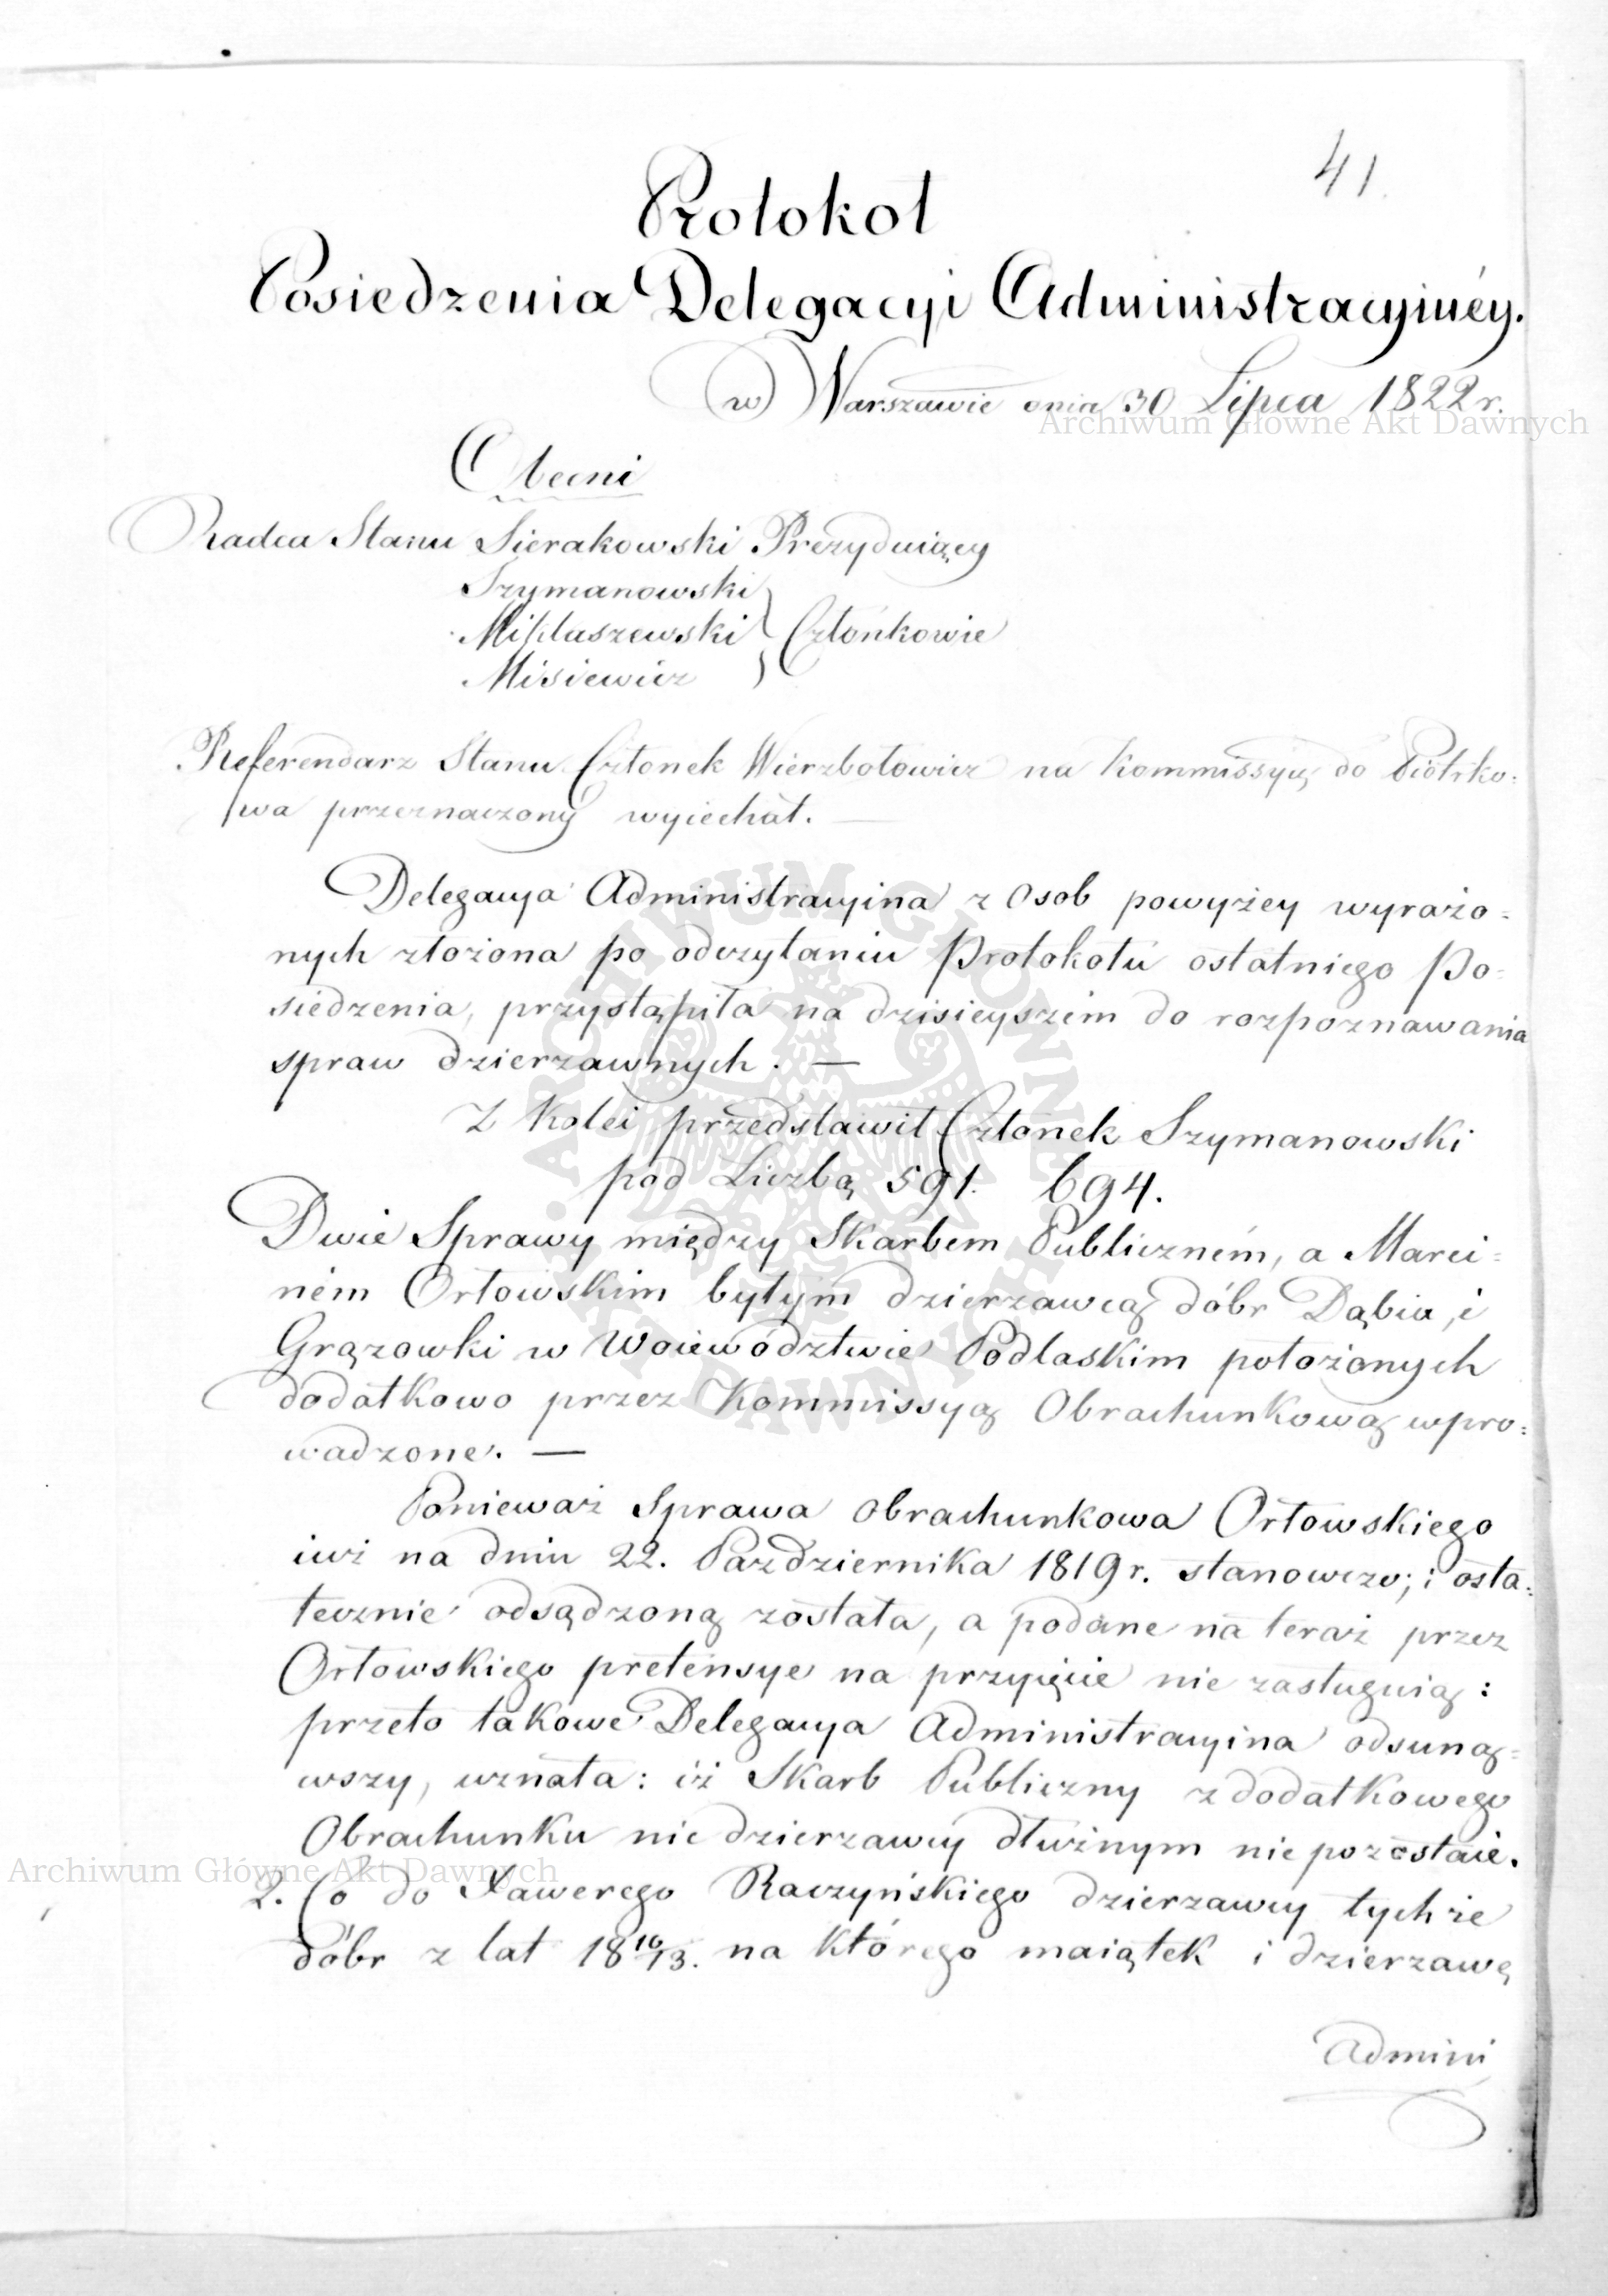 41.
Protokół
Posiedzenia Delegacyi Administracyinéy.
w Warszawie dnia 30 Lipca 1822 r.
Archiwum Główne Akt Dawnych
Obecni
Radca Stanu Sierakowski Prezyduiący
Szymanowski
Miklaszewski } Członkowie
Misiewicz
Referendarz Stanu Członek Wierzbołowicz na Kommissyą do Piotrko=
wa przeznaczony wyiechał. —
Delegacya Administracyina z Osob powyżey wyrażo=
nych złożona po odczytaniu Protokołu ostatniego Po=
siedzenia, przystąpiła na dzisieyszém do rozpoznawania
spraw dzierzawnych. —
Z Kolei przedstawił Członek Szymanowski
pod Liczbą 591. 694.
Dwie Sprawy między Skarbem Publiczném, a Marci=
ném Orłowskim byłym dzierzawcą dóbr Dąbia, i
Grązowki w Woiewództwie Podlaskim położonych
dodatkowo przez Kommissyą Obrachunkową wpro=
wadzone. —
Ponieważ Sprawa obrachunkowa Orłowskiego
iuż na dniu 22. Października 1819 r. stanowczo; i osta=
tecznie odsądzoną została, a podane na teraz przez
Orłowskiego pretensye na przyięcie nie zasługuią:
przeto takowe Delegacya Administracyina odsuną=
wszy, uznała: iż Skarb Publiczny z dodatkowego
Obrachunku nic dzierzawcy dłużnym nie pozostaie.
Archiwum Główne Akt Dawnych
2. Co do Xawerego Raczyńskiego dzierzawcy tychże
dóbr z lat 18 10/13. na którego maiątek i dzierzawę
Admini
ARCHIWUM GŁÓWNE AKT DAWNYCH